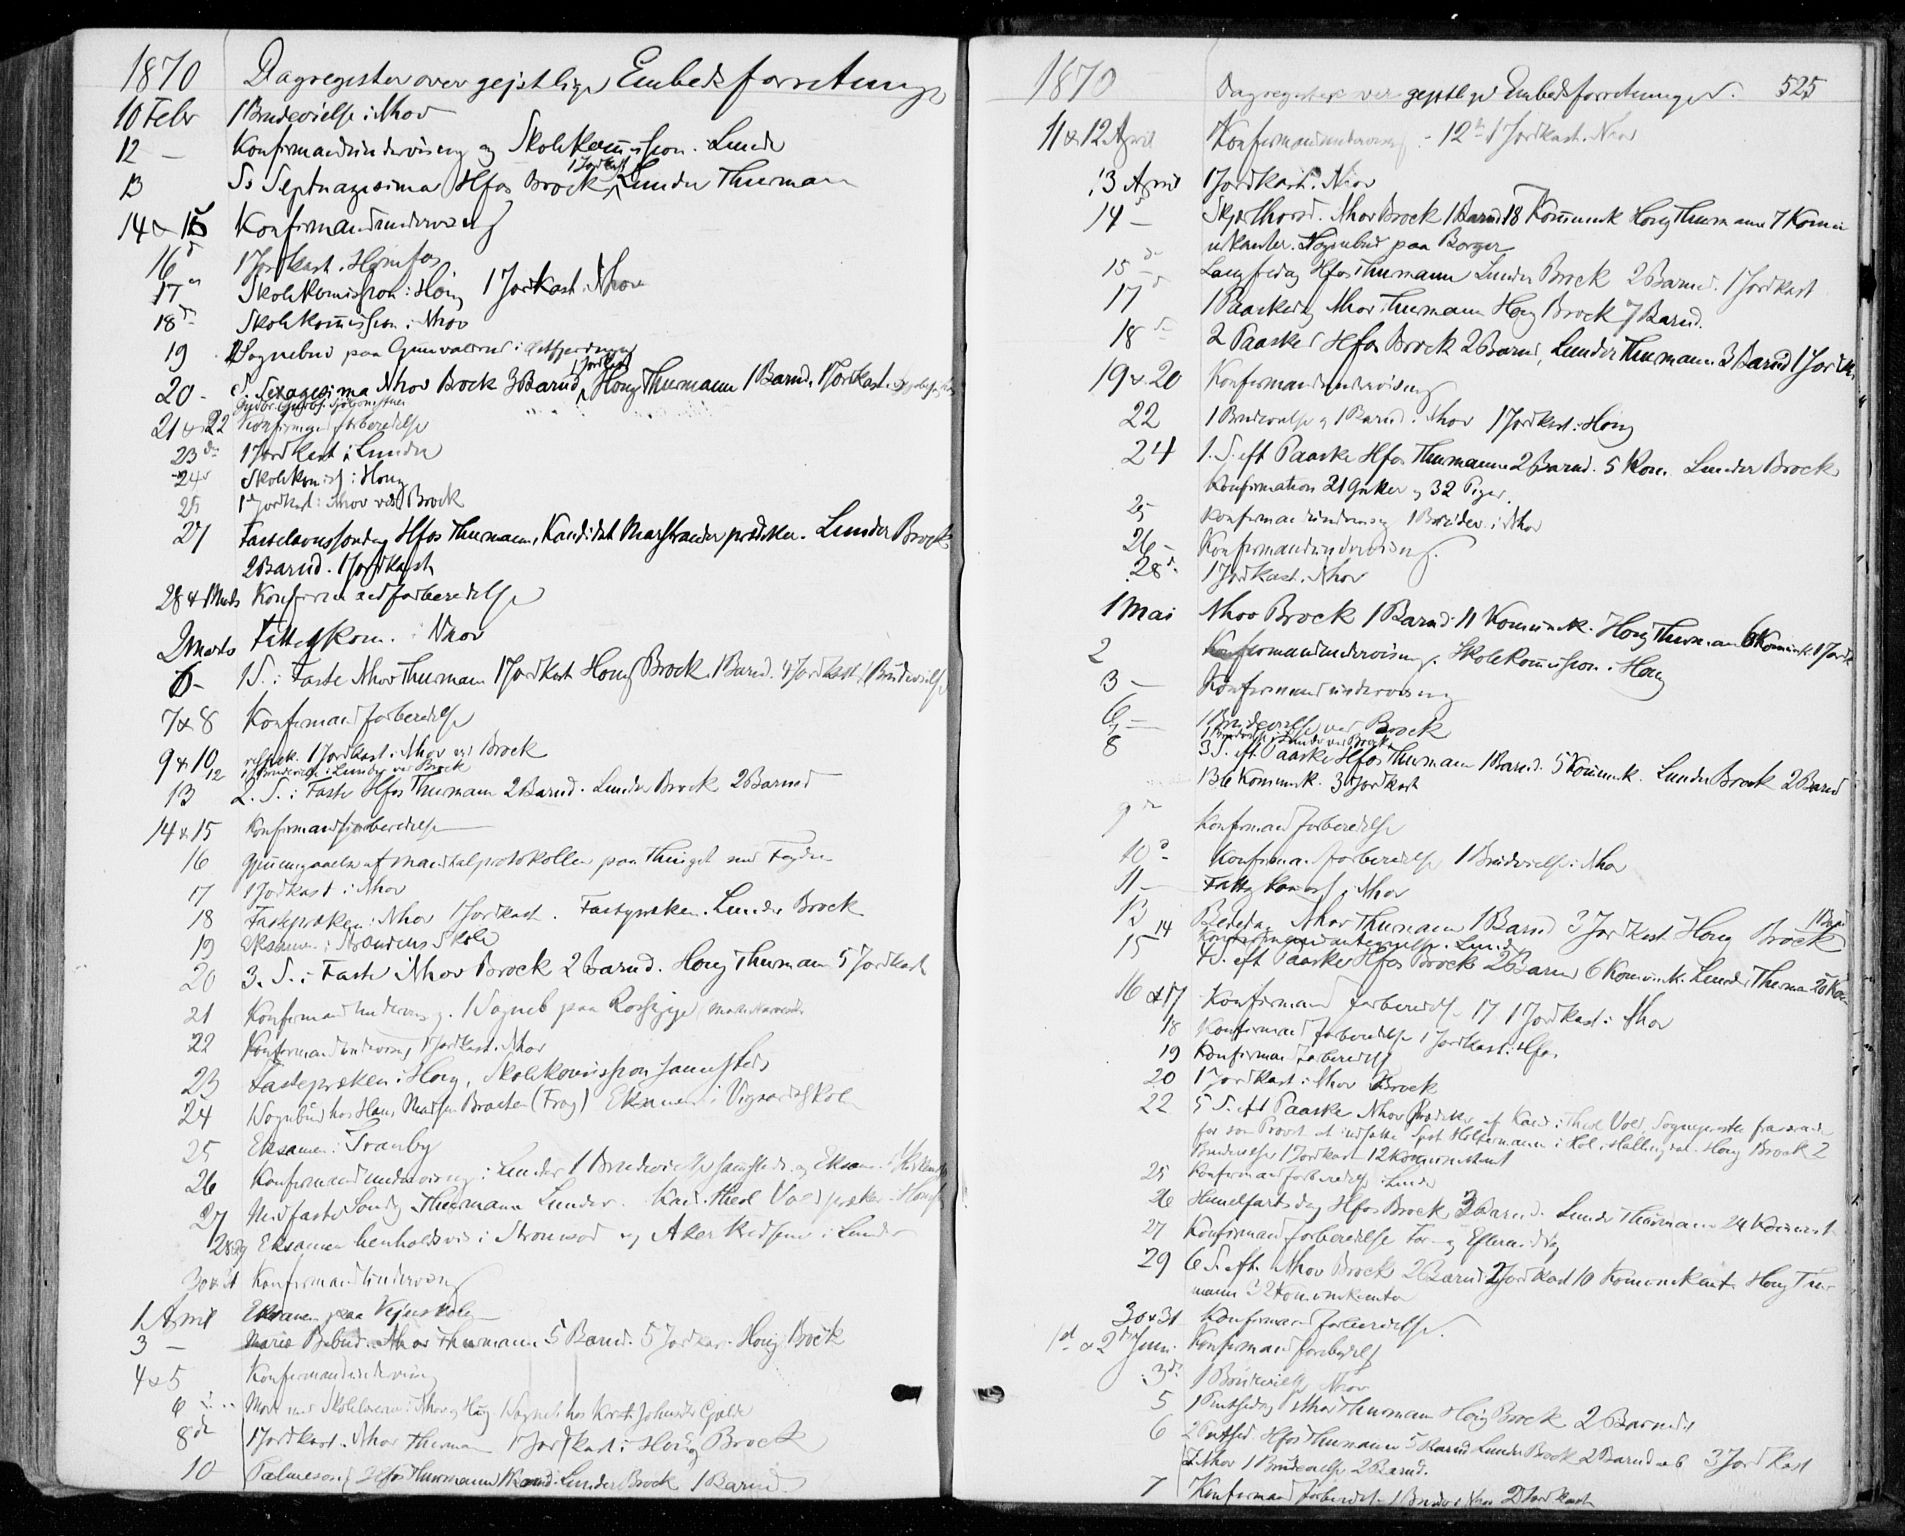 1870 Dagregister over gejstlige Embedsforretninger
10 Febr 1 Brudevielse i Nhov
12 — Konfirmandundervisning og Skolekommission. Lunder
13 Ss Septuagesima Hfos Brock 1 Jordkast Lunder Thurmann
14 & 15 Konfirmandundervisning
16 d 1 Jordkast. Hønefos
17 Skolekomission i Houg 1 Jordkast. Nhov
18 d Skolekommission i Nhov
19 1 Sognebud paa Gunvaldrud i
20 - S. Sexagesima Nhov Brock 3 Barnd 1 Jordkast Houg Thurmann 1 Barnd. 1 Jordkast.
21 & 22 Konfirmandforberedelse
23 d 1 Jordkast i Lunder
24 d Skolekomis i Houg
25 1 Jordkast i Nhov ved Brock
27 Fastelavnssondag Hfos Thurmann, Kandidat Marstrander prædiker. Lunder Brock
2 Barnd. 1 Jordkast
28 & 1 Marts Konfirmandforberedelse
2 Marts Fattigkom. i Nhov
6 - 1 S. i Faste Nhov Thurmann 1 Jordkast Houg Brock 1 Barnd. 4 Jordkast 1 Brudevielse
7 & 8 Konfirmandforberedelse
9 & 10 respek. 1 Jordkast i Nhov ved Brock
12 1 Brudeviels i Lunder ved Brock
13 2. S. i Faste Hfos Thurmann 2 Barnd. Lunder Brock 2 Barned
14 & 15 Konfirmandforberedelse
16 Gjennemgaaelse af Mandtalprotokollen paa Thinget med Fogden
17 1 Jordkast i Nhov
18 Fastepræken i Nhov 1 Jordkast. Fastepræken. Lunder Brock
19 Eksamen i Skole
20 3. S. i Faste Nhov Brock 2 Barnd. Houg Thurmann 5 Jordkast
21 Konfirmandunderv. 1 Sogneb paa
22 Konfirmandundervisning 1 Jordkast. Nhov
23 Fastepræken i Houg, Skolekomission samesteds
24 Sognebud hos Hans Madsen Braaten (Frog) Eksamen i Skolen
25 Eksamen i Tranby
26 Konfirmandundervisning i Lunder 1 Brudevielse samesteds og Eksam.
27 Midfaste Sondg Thurmann Lunder. Kand. theol Vold præker i Houg
28 & 29 Eksamen henholdsvis i og i Lunder
30 & 31 Konfirmandundervisning
1 April Eksamen paa
3 — Mariæ Bebud. Nhov Thurmann 5 Barnd. 5 Jordkas. Houg Brock
4 & 5 Konfirmandundervisning
6 Møde med Skolelærerne i Nhov og Houg Sogneb. hos
8 de 1 Jordkast. Nhov Thurmann 1 Jordkast i Houg Brock
10 Palmesond Hfos Thurmann 1 Barnd. Lunder Brock 1 Barnd.
1870 Dagregister over gejstlige Embedsforretninger. 525
11 & 12 April Konfirmandundervisng - 12 te 1 Jordkast. Nhov
13 April 1 Jordkast. Nhov
14 — Skjærthorsd. Nhov Brock 1 Barnd 18 Kommunik Houg Thurmann 7 Kommu
nikanter. Sognebud paa Borger
15 de Langfredag Hfos Thurmann Lunder Brock 2 Barnd. 1 Jordkast
17 1 Paaskedag Nhov Thurmann Houg Brock 7 Barnd.
18 d 2 Paasked Hfos Brock 2 Barnd, Lunder Thurmann 3 Barnd 1 Jordk.
19 & 20 Konfirmandundervisning
22 1 Brudevielse og 1 Barnd. Nhov 1 Jordkast i Houg
24 1. S. eft Paaske Hfos Thurmann 2 Barnd. 5 Kom. Lunder Brock
Konfirmation 21 Gutter og 32 Piger.
25 Konfirmandundervisng 1 Brudev. i Nhov
26 — Konfirmandundervisning.
28 d 1 Jordkast. Nhov
1 Mai Nhov Brock 1 Barnd 11 Kommunik. Houg Thurmann 6 Kommunik 1 Jordk
2 Konfirmandundervisning. Skolekommission. Houg
3 — Konfirmandundervisning
6 — 1 Brudevielse ved Brock
7 — 1 Brudevielse i Lunder ved Brock
8 3 S. eft. Paaske Hfos Thurmann 1 Barnd. 5 Kommunk. Lunder Brock 2 Barnd
136 Kommunik. 3 Jordkast
9 de Konfirmandforberedelse
10 d Konfirman. forberedelse 1 Brudevielse i Nhov
11 — Fattigkomis i Nhov
13 Bededag Nhov Thurmann 1 Barnd 3 Jordkast Houg Brock 1 Brud
14 Konfirmandantegnelse. Lunder
15 4 S. eft Paaske Hfos Brock 2 Barnd 6 Kommunk. Lunder Thurmann 20 Kom
16 & 17 Konfirmand forberedels 17 1 Jordkast i Nhov
18 Konfirmandforberedelse 1 Jordkast i Hfos
19 Konfirmandforberedelse
20 1 Jordkast i Nhov Brock
22 5 S. eft Paaske Nhov Prædiken af Kand. i Theol Vold, Sognepresten fraværende
for som Provst at indsætte Spst i Hol, Hallingdal. Houg Brock 2
Brudevielse 1 Jordkast 12 Kommunikant
25 Konfirmandforberedelse Lunder
26 Himmelfartsdag Hfos Brock 3 Barnd. Lunder Thurmann 24 Kommunik
27 Konfirmandforberedelse For- og Eftermiddag
29 6 S. eft. Nhov Brock 2 Barnd 2 Jordkast 10 Kommunikant. Houg Thur
mann 32 Kommunikanter
30 & 31 Konfirmandforberedelse.
1 st & 2 den Juni Konfirmandforberedelse
3 d 1 Brudevielse Nhov
5 1 Pintsedag Nhov Thurmann Houg Brock 2 Barned
6 2 Pintsed. Hfos Thurmann 5 Barnd Lunder Brock 2 Barnd 3 Jordkast
I Nhov 1 Brudevielse 2 Barnd.
7 Konfirmand forberedels 1 Brudev. Nhov 2 Jordkast